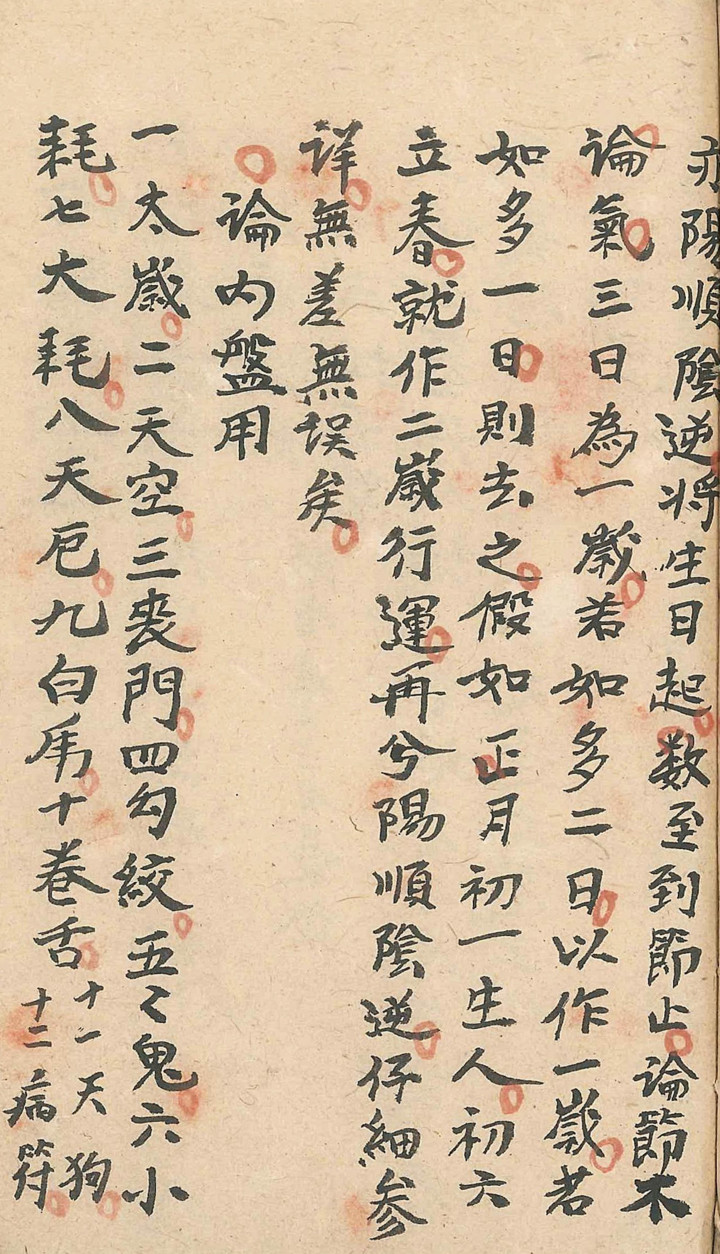 亦陽順陰逆将生日起数至到節止論節不
論氣三日為一歲若如多二日以作一歲若
如多一日則去之假如正月初一生人初六
立春就作二歲行運再兮陽順陰逆仔細参
詳無差無悮矣
論内盤用
一太歲二天空三喪門四勾絞五〻鬼六小
耗七大耗八天厄九白虎十卷舌十一天狗
十二病符